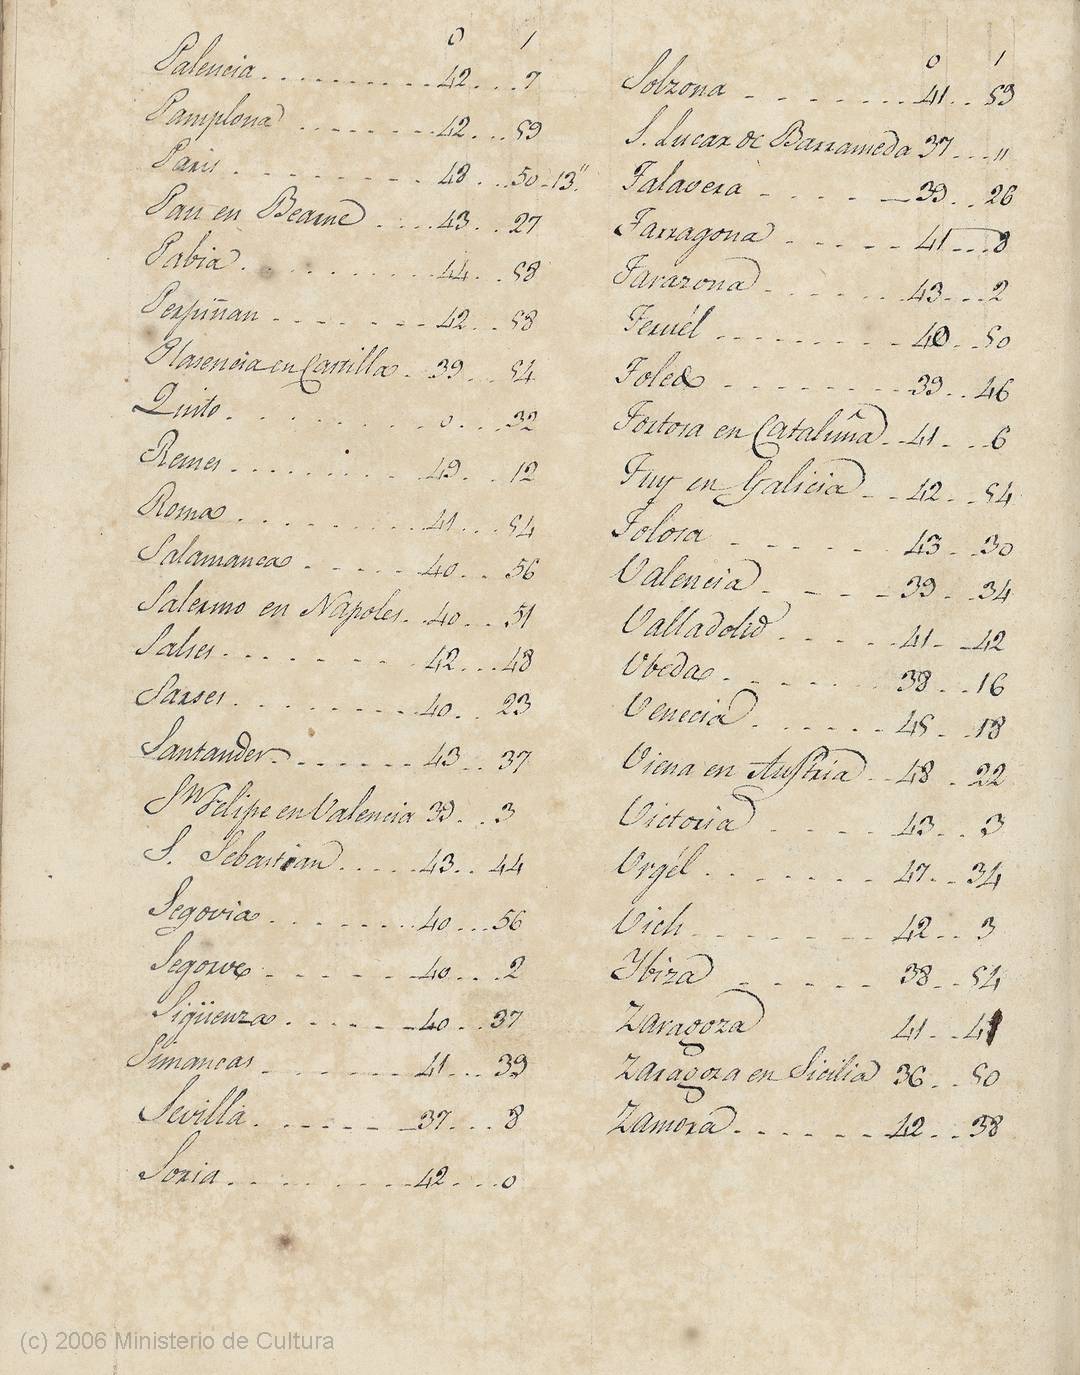 0 /
Palencia.......... 42...7
Pamplona ........ 42...59
Paris ......... 48...50-13".
Pau en Bearne .... 43..27
Pabia.......... 44...58
Perpiñan ....... 42...58
Plasencia en Castilla. 39...54
Quito......... 0...32
Remes........ 49...12
Roma........ 41...54
Salamanca...... 40...56
Salermo en Napoles. 40...51
Salses......... 42...48
Sarses......... 40...23
Santander....... 43...37
Sn Felipe en Valencia 39...3
S. Sebastian..... 43..44
Segovia....... 40...56
Segorve ...... 40...2
Sigüenza...... 40...37
Simancas ...... 41...39
Sevilla....... 37...8
Soria........ 42...0
0 1
Solzona ....... 41..53
S. Lucar de Barrameda 37...."
Talavera ...... 39..26
Tarragona ..... 41...8
Tarazona ...... 43...2
Teruél ........ 40..50
Toledo ........ 39..46
Tortosa en Cataluña. 41...6
Tuy en Galicia .. 42..54
Tolosa ...... 43..30
Valencia ..... 39..34
Valladolid ..... 41..42
Vbeda ....... 38..16
Venecia ...... 45..18
Viena en Austria .. 48..22
Victoria ..... 43...3
Vrgél ....... 47..34
Vich ....... 42..3
Ybiza ...... 38...54
Zaragoza 41..41
Zaragoza en Sicilia 36..50
Zamora....... 42..38
(c) 2006 Ministerio de Cultura